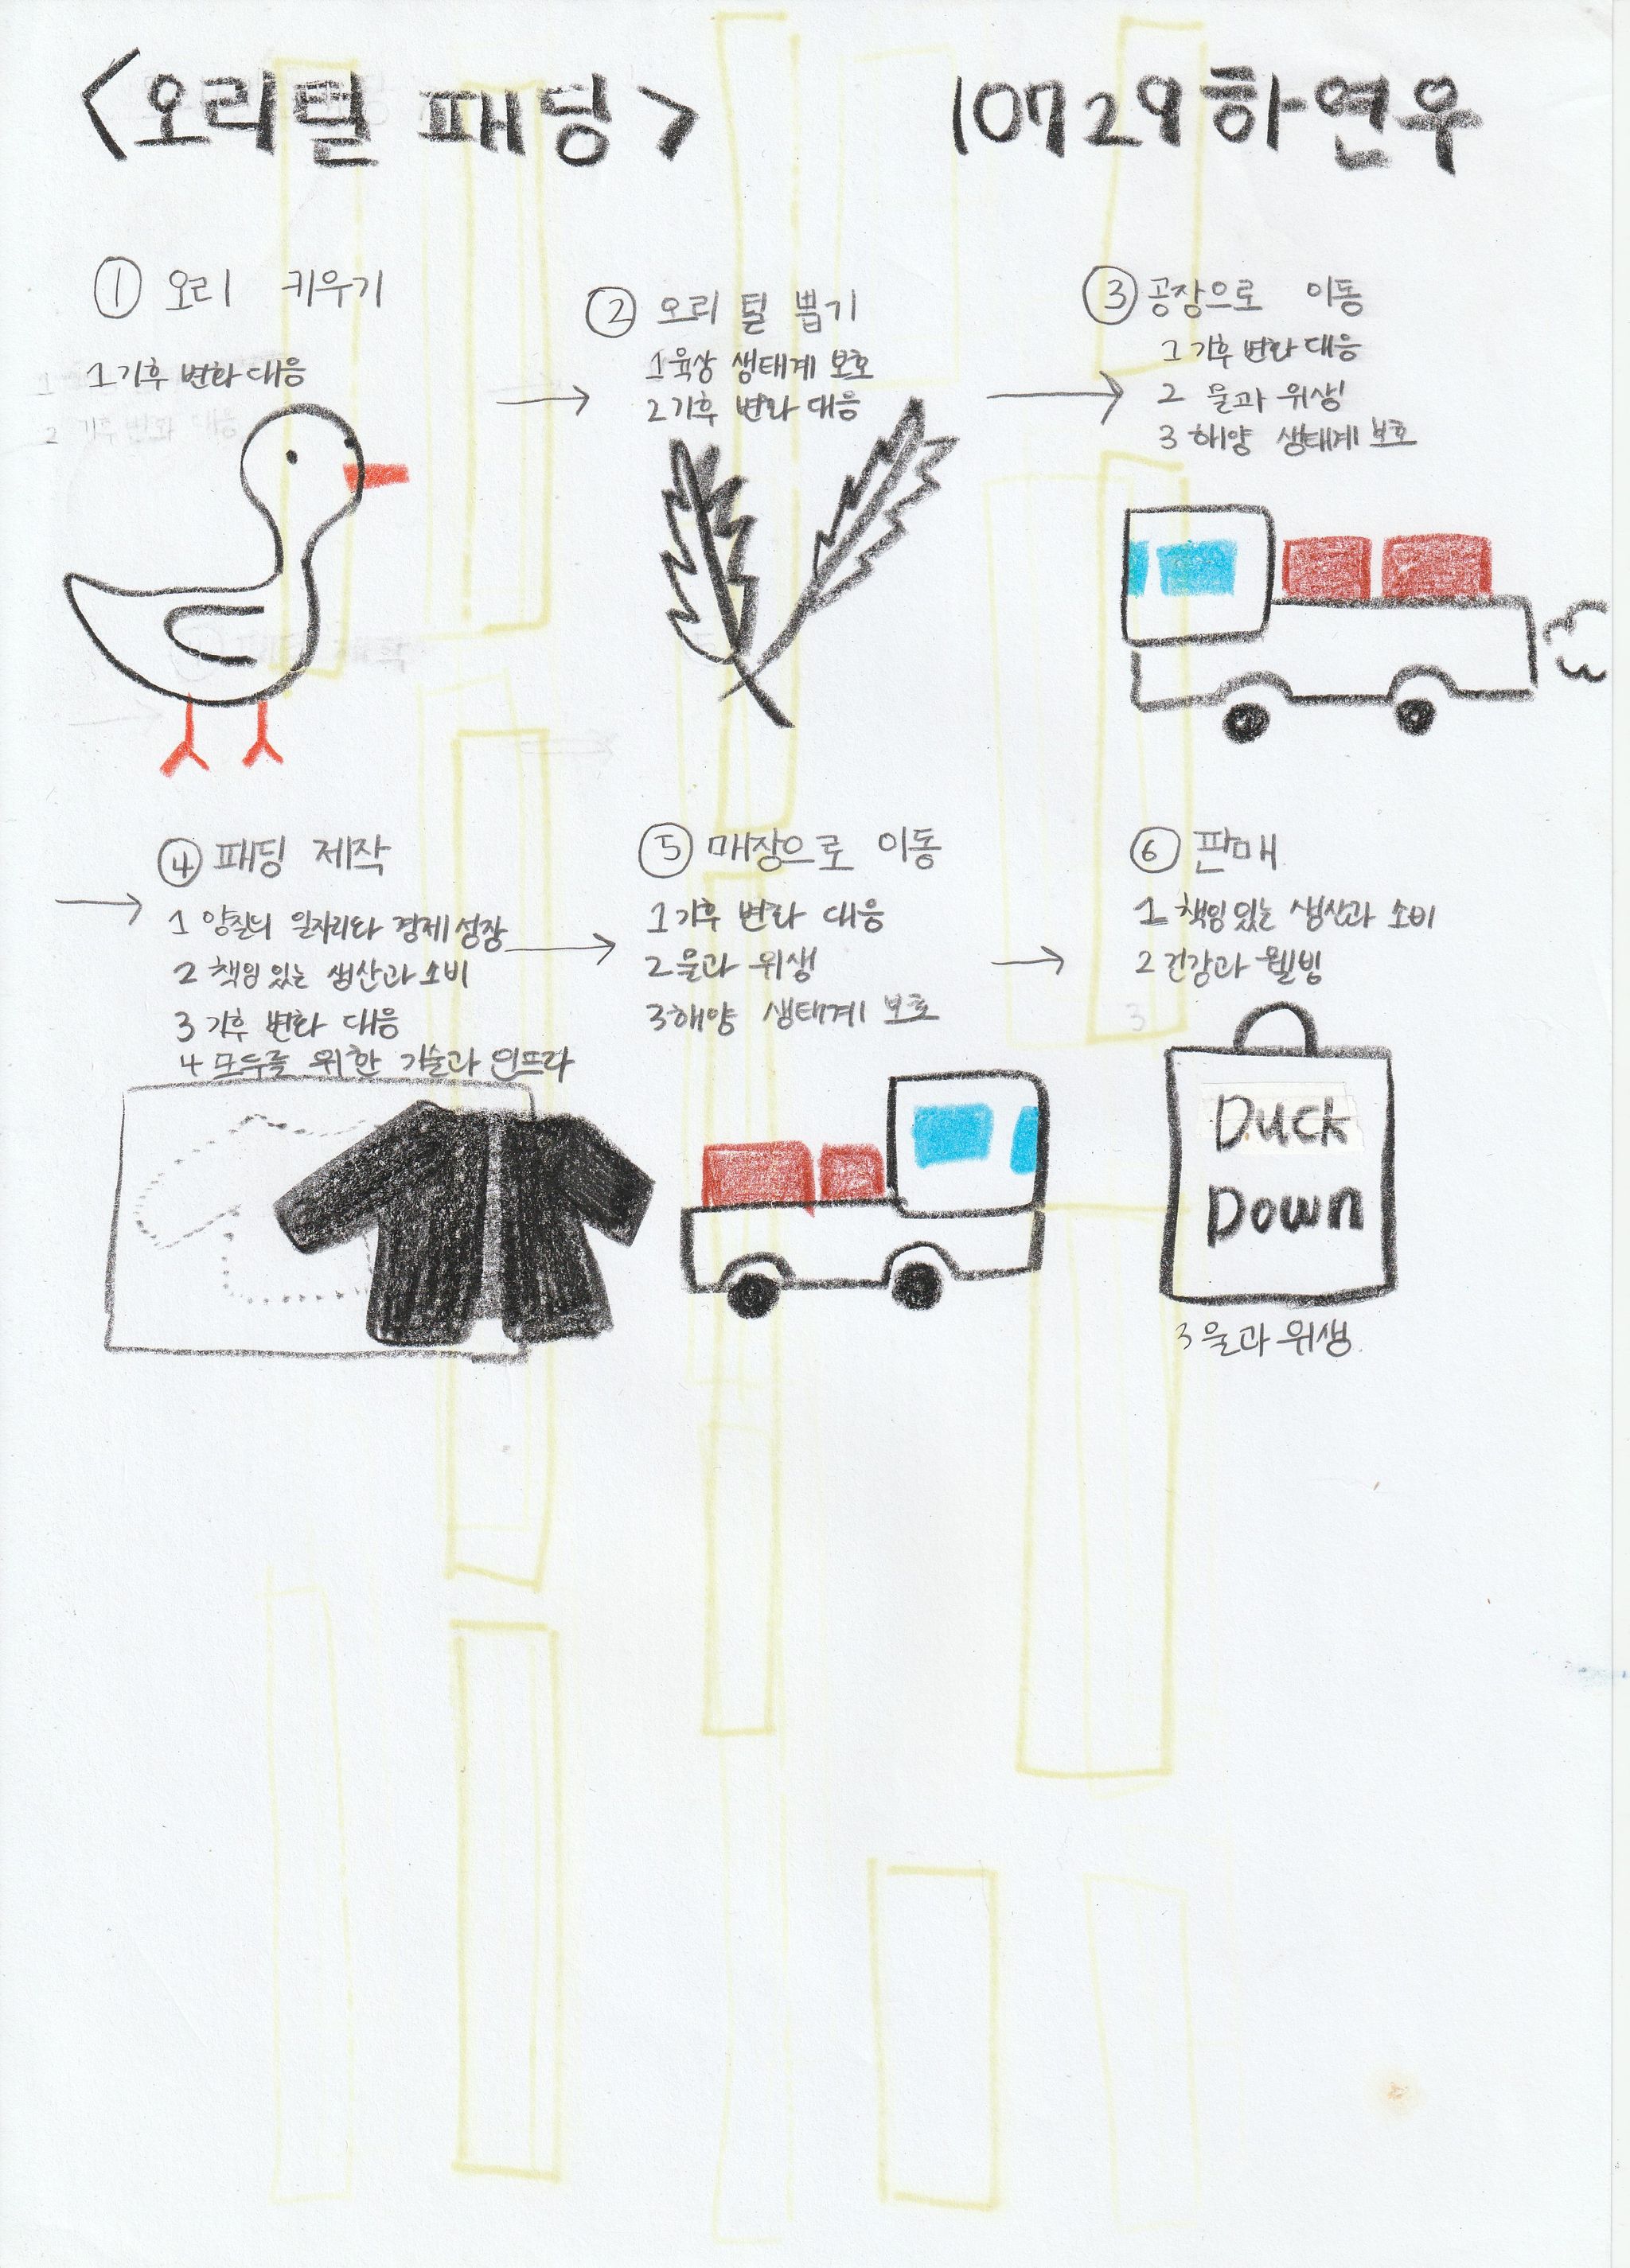 <오리털 패딩>
10729 하연우
① 오리 키우기
1 기후 변화 대응
② 오리 털 뽑기
1 육상 생태계 보호
2 기후 변화 대응
③ 공장으로 이동
1 기후 변화 대응
2 물과 위생
3 해양 생태계 보호
④ 패딩 제작
1 양질의 일자리와 경제 성장
2 책임 있는 생산과 소비
3 기후 변화 대응
4 모두를 위한 기술과 인프라
⑤ 매장으로 이동
1 기후 변화 대응
2 물과 위생
3 해양 생태계 보호
⑥ 판매
1 책임 있는 생산과 소비
2 건강과 웰빙
Duck
Down
3 물과 위생.